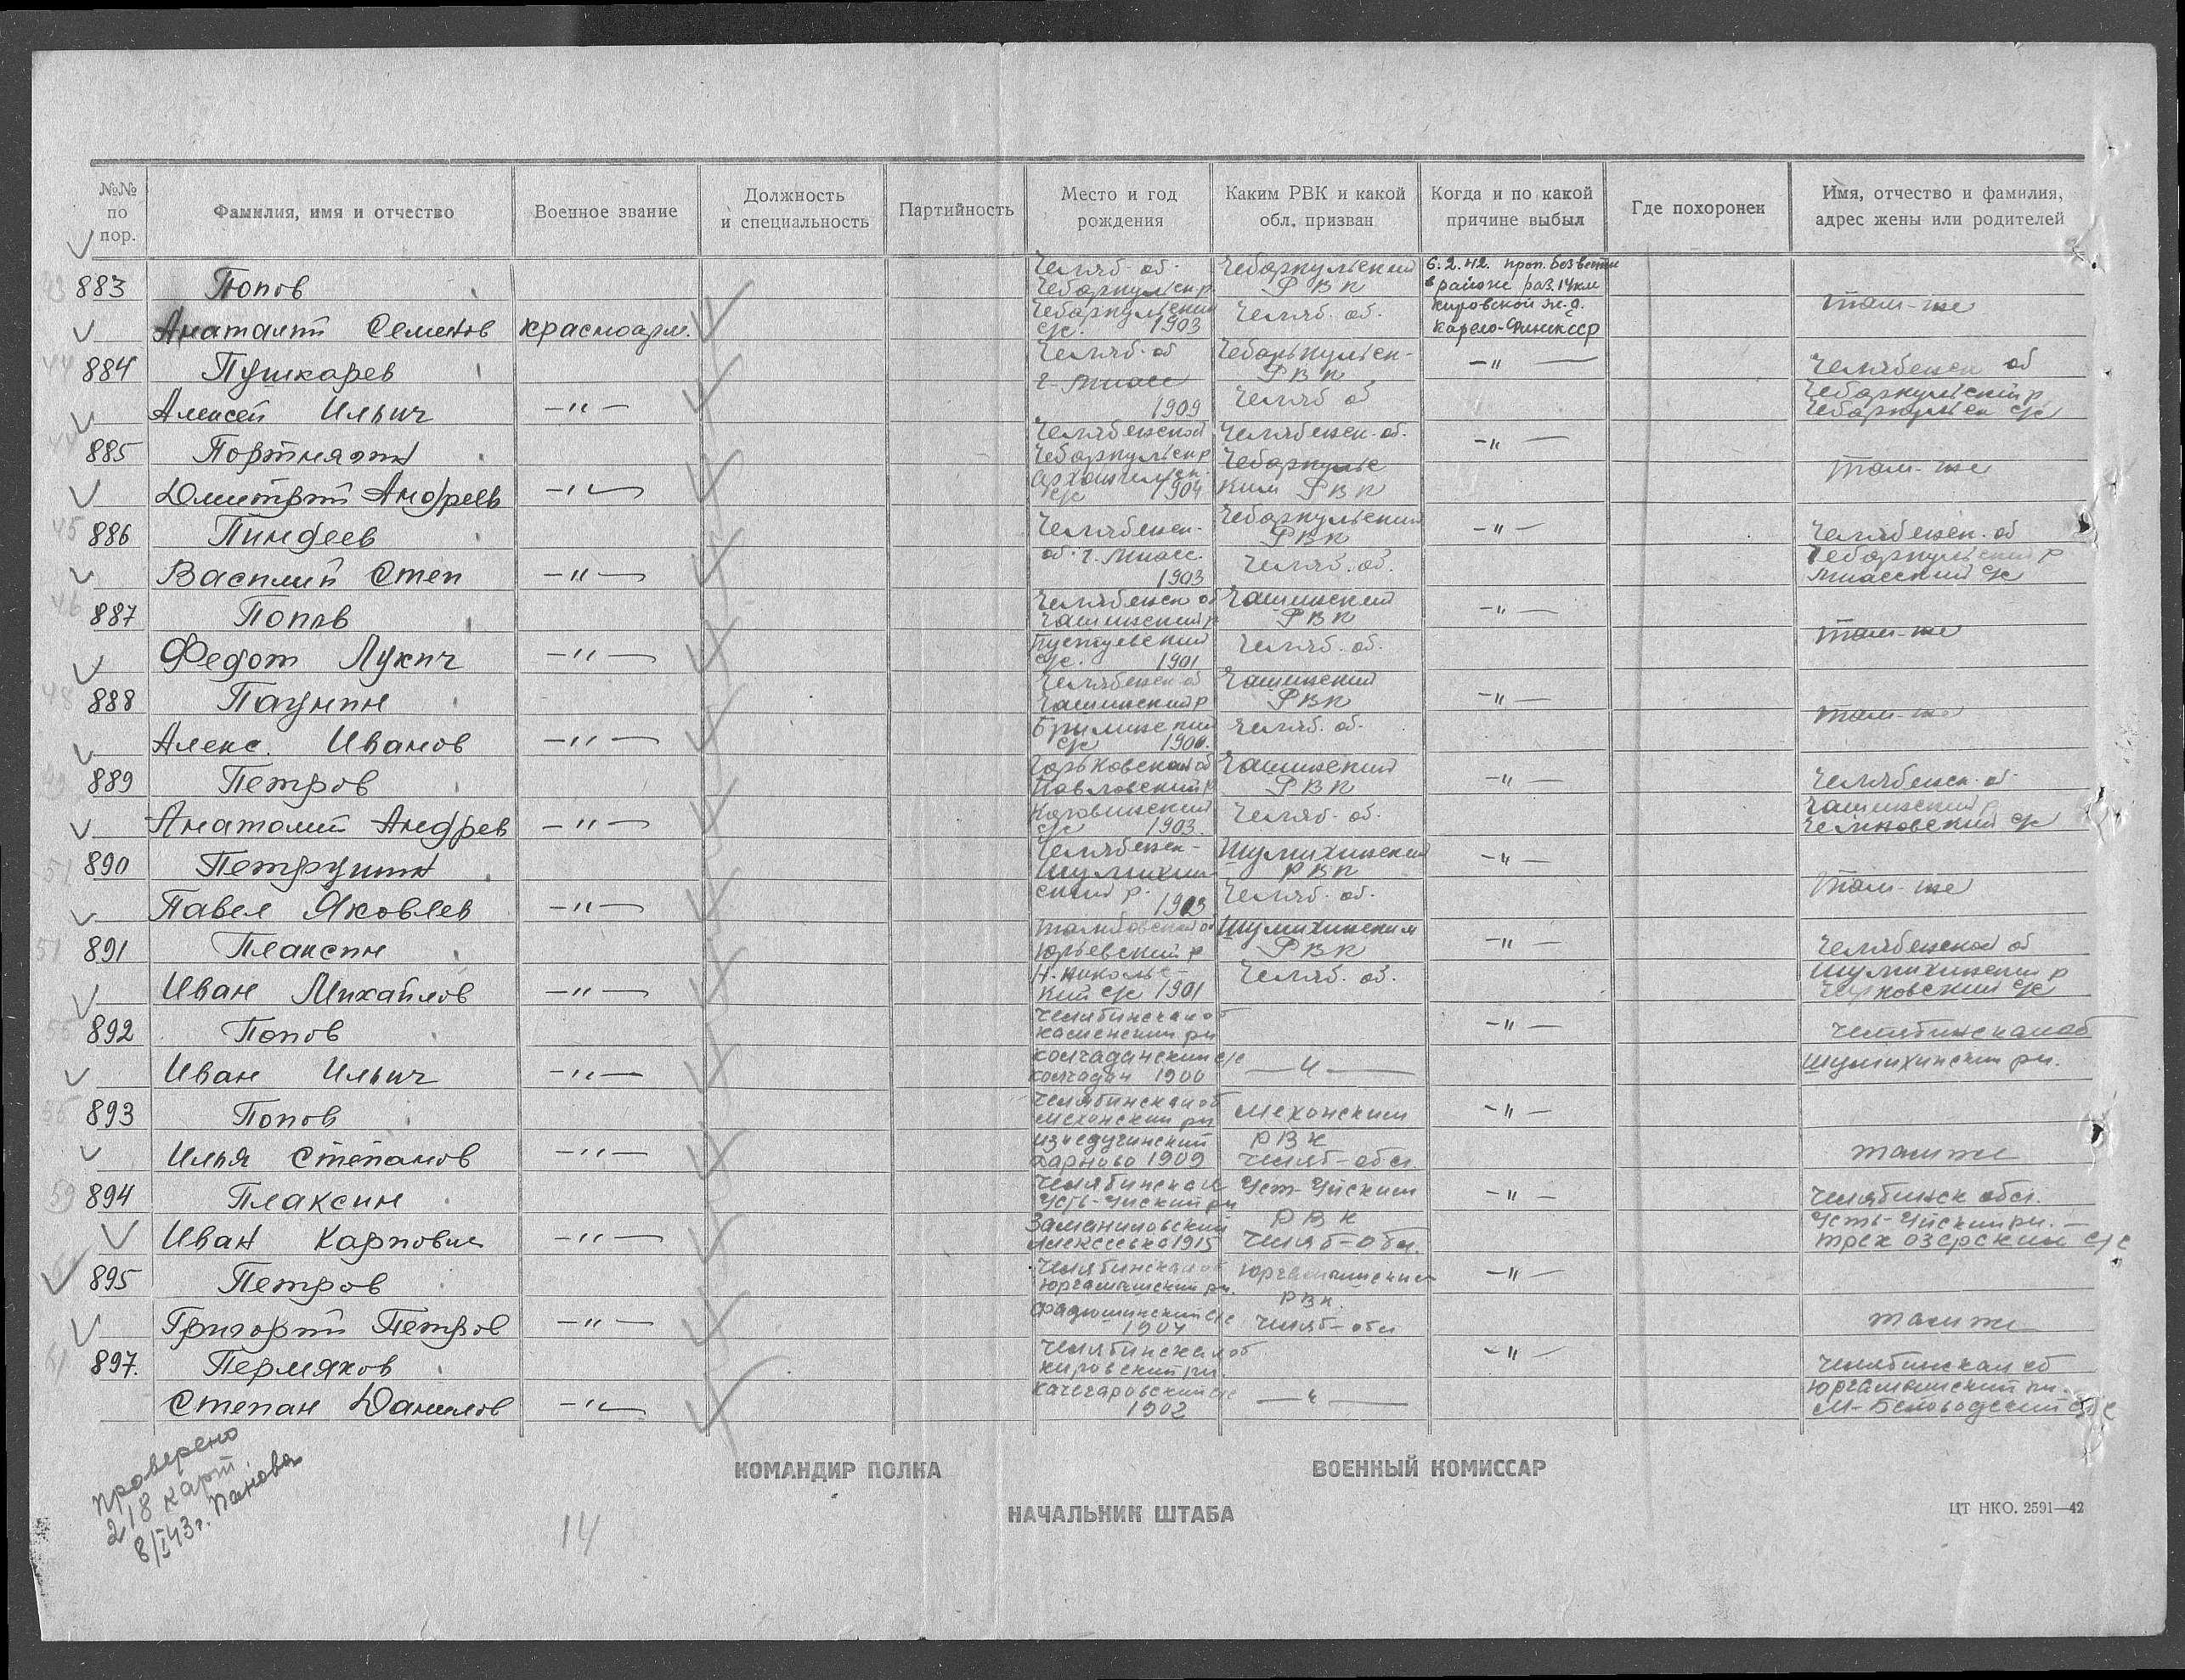 №№ по пор.
Фамилия, имя и отчество
Военное звание
Должность и специальность
Партийность
Место и год рождения
Каким РВК и какой обл. призван
Когда и по какой причине выбыл
Где похоронен
Имя, отчество и фамилия, адрес жены или родителей
883 Попов
Анатолий Семенов красноарм.
Челяб. об.
Чебаркульск р
Чебаркульский
с/с. 1903
Чебаркульский
РВК
Челяб. об.
6.2.42. проп. без вести
в районе раз. 14 км
Кировской ж.д.
Карело-Финской ССР
там-же
884 Пушкарев
Алексей Ильич -"-
Челяб. об
г. Миасс
1909
Чебаркульск-
РВК
Челяб об
-"-
Челябинск об
Чебаркульский р
Чебаркульск с/с
885 Портнягин
Дмитрий Андреев -"-
Челябинской
Чебаркульск р
Архангельск.
с/с 1904
Челябинск. об.
Чебаркульс
ким РВК
-"-
там-же
886 Пиндеев
Василий Степ -"-
Челябинск.
об. г. Миасс.
1903
Чебаркульский
РВК
Челяб. об.
-"-
Челябинск. об
Чебаркульский р
Миасский с/с
887 Попов
Федот Лукич -"-
Челябинск об
Чашинский р
с/с. 1901
Чашинский
РВК
Челяб. об.
-"-
там-же
888 Паунин
Алекс. Иванов -"-
Челябинск об
Чашинский р
с/с 1900.
Чашинский
РВК
Челяб. об.
-"-
там-же
889 Петров
Анатолий Андрев -"-
Горьковской об
Павловский р
с/с 1903.
Чашинский
РВК
Челяб. об.
-"-
Челябинск. об.
Чашинский р
с/с
890 Петрушин
Павел Яковлев -"-
Челябинск-
Шумихин-
ский р.
1903
Шумихинский
РВК
Челяб. об.
-"-
там-же
891 Плаксин
Иван Михайлов -"-
Тамбовской об
Юрьевский р
Н. Николье-
кий с/с 1901
Шумихинским
РВК
Челяб. об.
-"-
Челябинской об
Шумихинский р
с/с
892 Попов
Иван Ильич -"-
Челябинская об
Каменский рн
Колчаданский с/с
Колчадан 1900
-"-
-"-
Челябинская об
Шумихинский рн.
893 Попов
Илья Степанов -"-
Челябинская об
Мехонский рн
1909
Мехонским
РВК
Челяб-обл.
-"-
там же
894 Плаксин
Иван Карпович -"-
Челябинская
Усть-Уйский рн
1915
Уст-Уйским
РВК
Челяб-обл.
-"-
Челябинск обл.
Усть-Уйский рн.
Трех озерский с/с
895 Петров
Григорий Петров -"-
Челябинская об
Юргамышский рн.
Фадюшинский с/с
1904
Юргамышский
РВК.
Челяб-обл
-"-
там же
897. Пермяков
Степан Данилов -"-
Челябинская об
Кировский рн.
1902
-"-
-"-
Челябинская об
Юргамышский рн.
М-Беловодский с/с
проверено
218 карт.
8/I 43г. Панова
14
КОМАНДИР ПОЛКА
ВОЕННЫЙ КОМИССАР
НАЧАЛЬНИК ШТАБА
ЦТ НКО. 2591—42